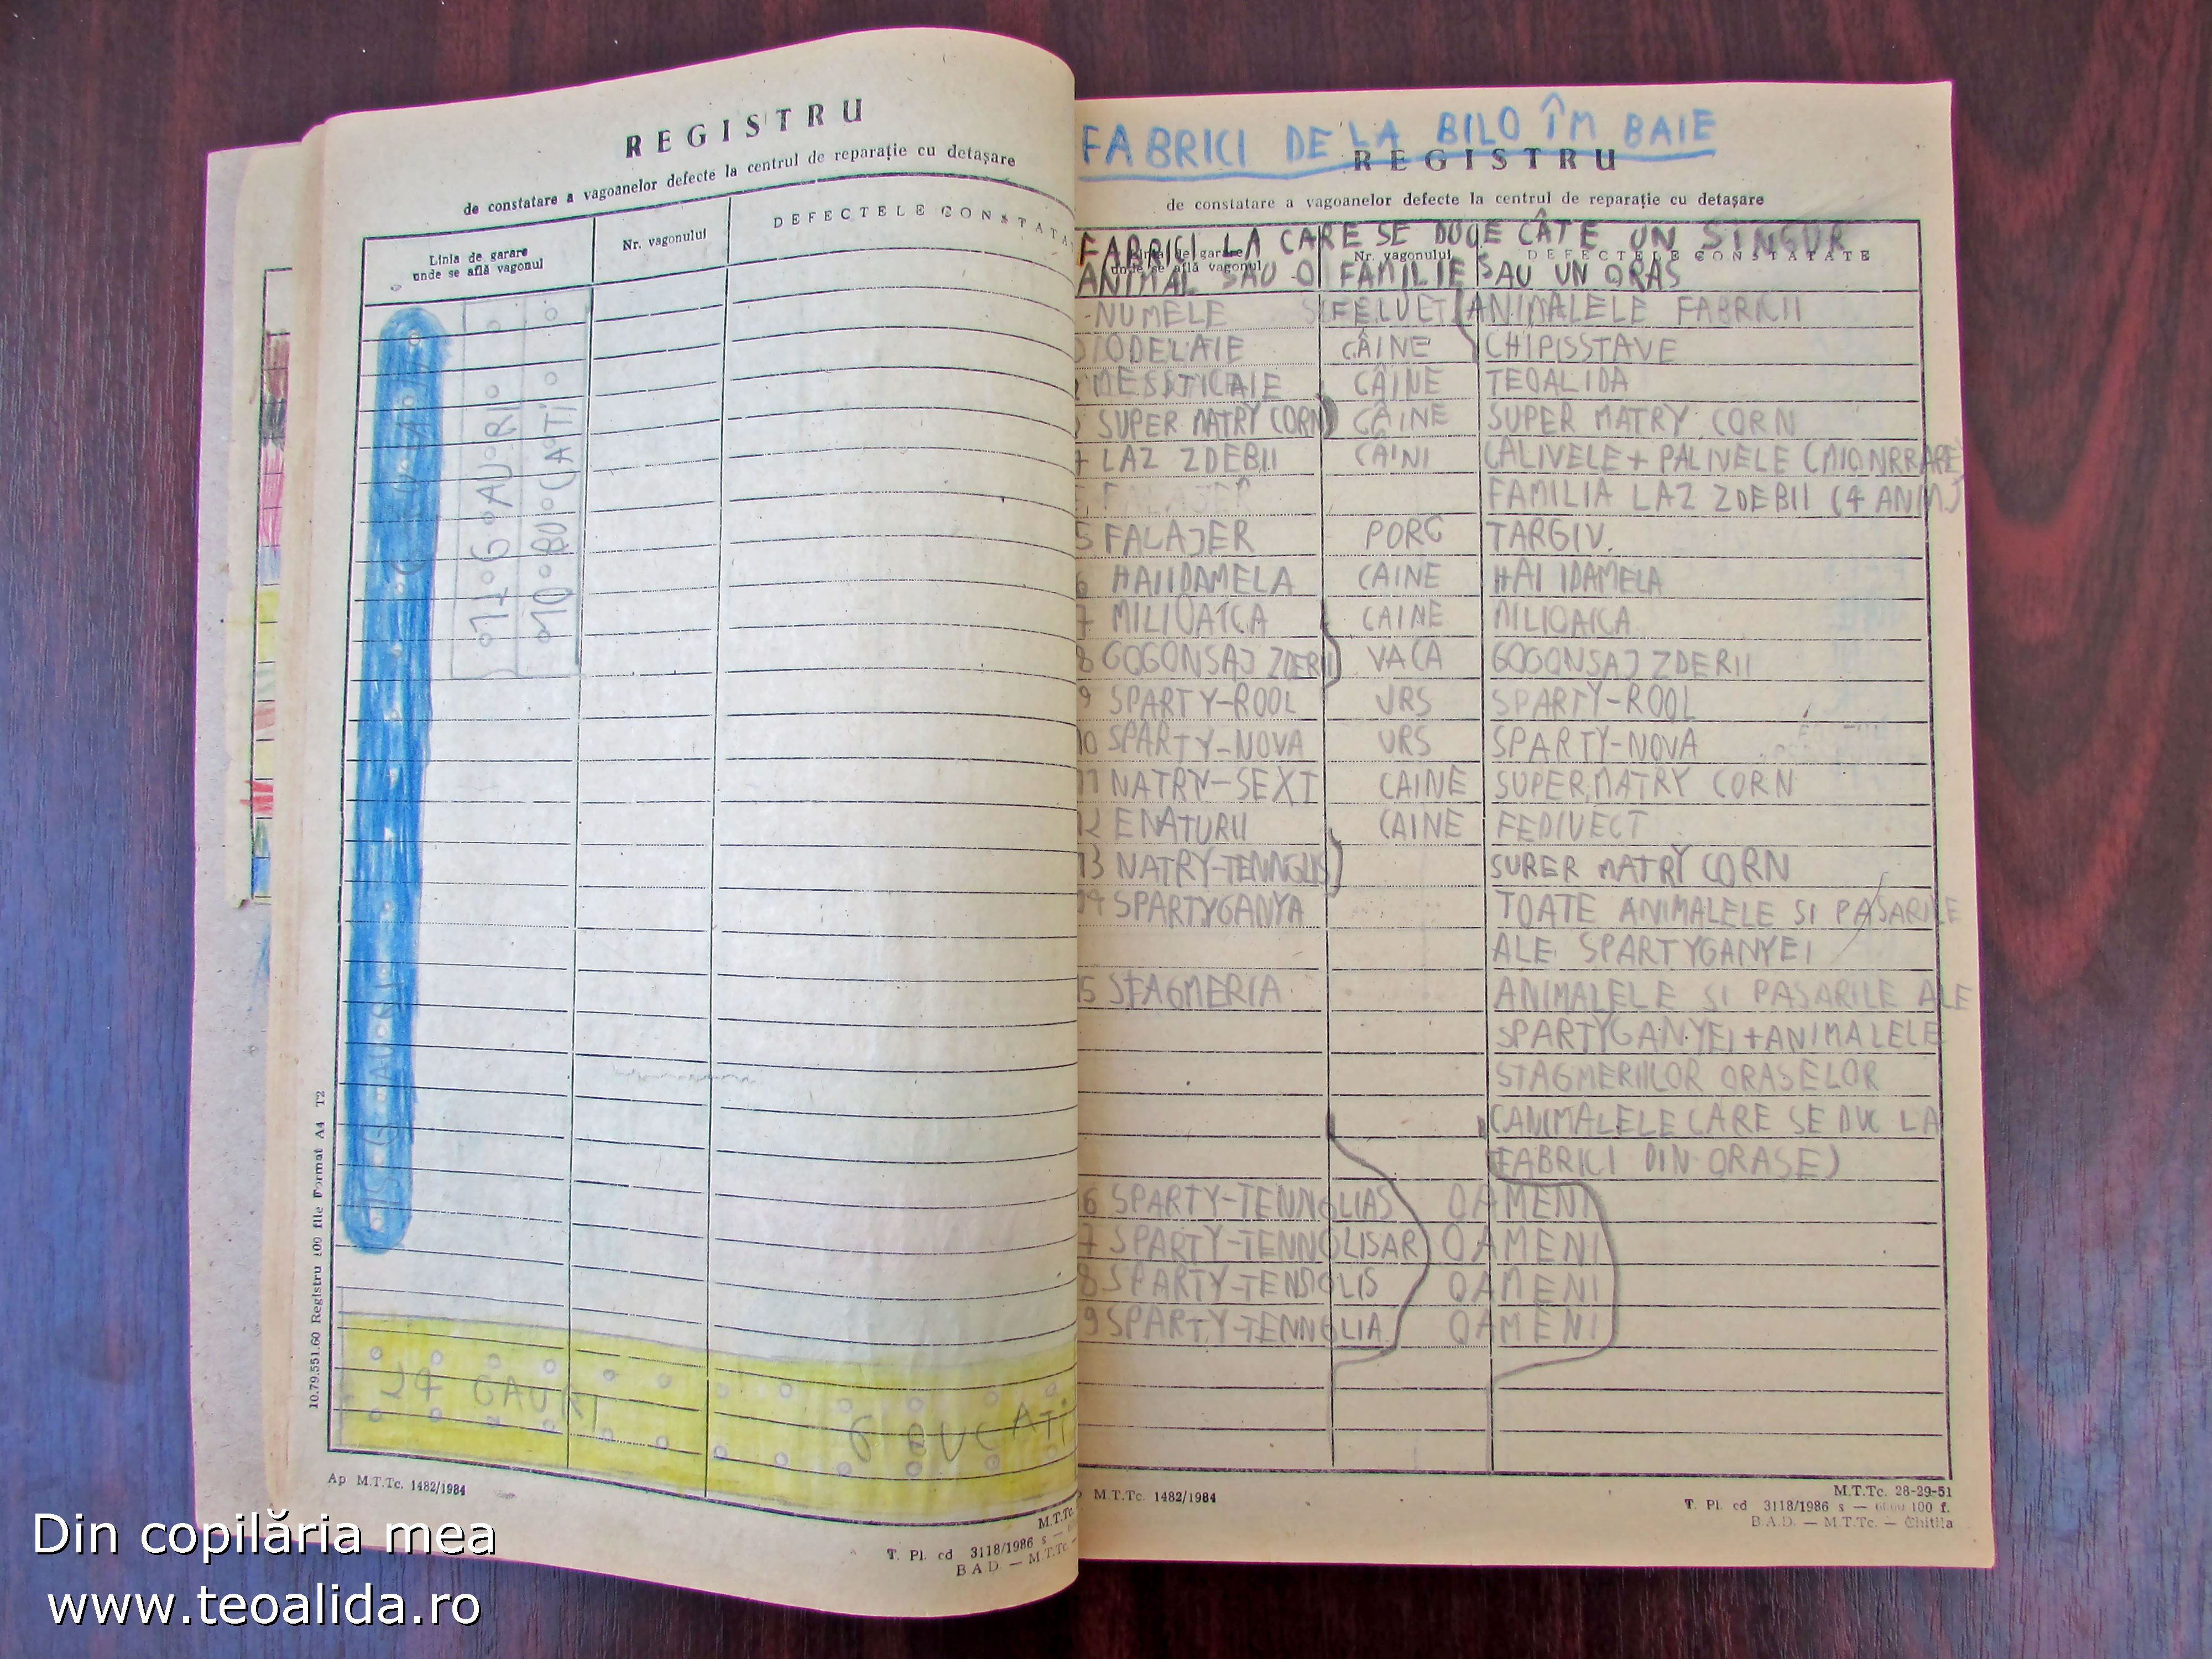 REGISTRU
de constatare a vagoanelor defecte la centrul de reparație cu detașare
Linia de garare
unde se află vagonul
Nr. vagonului
DEFECTELE CONSTATA
17 G AU RI
10 BU CATI
24 GAURI
6 BUCATI
10.79.551.60 Registru 100 file Format A4 T2
Ap M.T.Tc. 1482/1984
M.T.Tc.
T. Pl. cd 3118/1986 s —
B.A.D. — M.T.Tc. —
FABRICI DE LA BILO ÎM BAIE
REGISTRU
de constatare a vagoanelor defecte la centrul de reparație cu detașare
FABRICI LA CARE SE DUCE CÂTE UN SINGUR
Nr. vagonului DEFECTELE CONSTATATE
unde se află vagonul
ANIMAL SAU O FAMILIE SAU UN ORAS
NUMELE FELUL ANIMALELE FABRICII
IODELAIE CÂINE CHIPISSTAVE
MESSTICAIE CÂINE TEOALIDA
SUPER MATRY CORN CÂINE SUPER MATRY CORN
4 LAZ ZDEBII CÂINI CALIVELE + PALIVELE (MIONRRARE)
FAMILIA LAZ ZDEBII (4 ANIM)
5 FALAJER PORC TARGIV.
6 HAIIDAMELA CAINE HAI IDAMELA
7 MILIOAICA CAINE MILIOAICA
8 GOGONSAJ ZDERII VACA GOGONSAJ ZDERII
9 SPARTY-ROOL URS SPARTY-ROOL
10 SPARTY-NOVA URS SPARTY-NOVA
11 NATRY-SEXI CAINE SUPER MATRY CORN
12 ENATURII CAINE FEDIVECT
13 NATRY-TENNGLIS SURER MATRY CORN
14 SPARTYGANYA TOATE ANIMALELE SI PASARILE
ALE SPARTYGANYEI
15 STAGMERIA ANIMALELE SI PASARILE ALE
SPARTYGANYEI + ANIMALELE
STAGMERIILOR ORASELOR
(ANIMALELE CARE SE DUC LA
FABRICI DIN ORASE)
6 SPARTY-TENNGLIAS OAMENI
7 SPARTY-TENNGLISAR OAMENI
8 SPARTY-TENDOLIS OAMENI
9 SPARTY-TENNGLIA OAMENI
M.T.Tc. 1482/1984
M.T.Tc. 28-29-51
T. Pl. cd 3118/1986 s — 100 f.
B.A.D. — M.T.Tc. — Chitila
Din copilăria mea
www.teoalida.ro